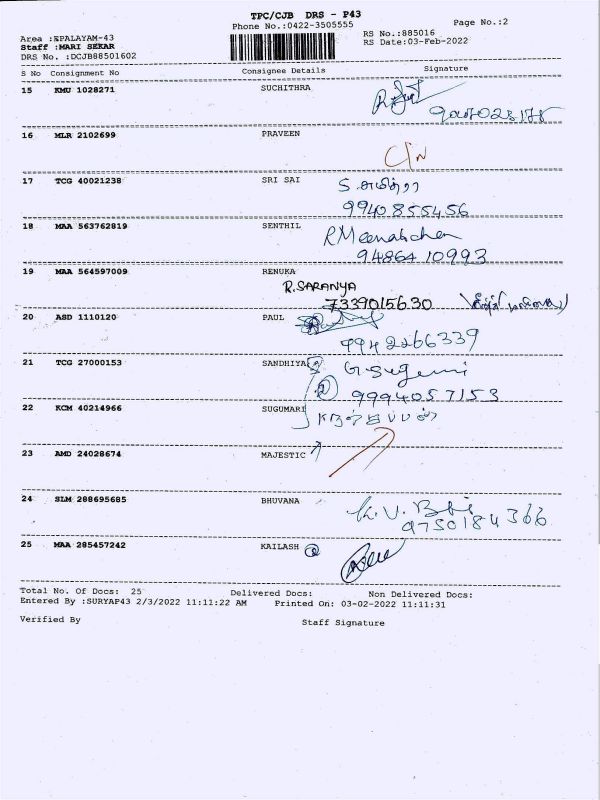 TPC/CJB DRS - P43
Phone No.:0422-3505555
Page No.:2
Area :SPALAYAM-43
RS No.:885016
Staff :MARI SEKAR
RS Date:03-Feb-2022
DRS No. :DCJB88501602
S No Consignment No Consignee Details Signature
15 KMU 1028271 SUCHITHRA
16 MLR 2102699 PRAVEEN
17 TCG 40021238 SRI SAI
9940855456
18 MAA 563762819 SENTHIL
R Meenatchi
9486410993
19 MAA 564597009 RENUKA
R.SARANYA
7339015630
20 ASD 1110120 PAUL
9942266339
21 TCG 27000153 SANDHIYA
G. Sugemi
9994057153
22 KCM 40214966 SUGUMARI
23 AMD 24028674 MAJESTIC
24 SLM 288695685 BHUVANA
K.V.
9750184366
25 MAA 285457242 KAILASH
Total No. Of Docs: 25 Delivered Docs: Non Delivered Docs:
Entered By :SURYAP43 2/3/2022 11:11:22 AM Printed On: 03-02-2022 11:11:31
Verified By Staff Signature